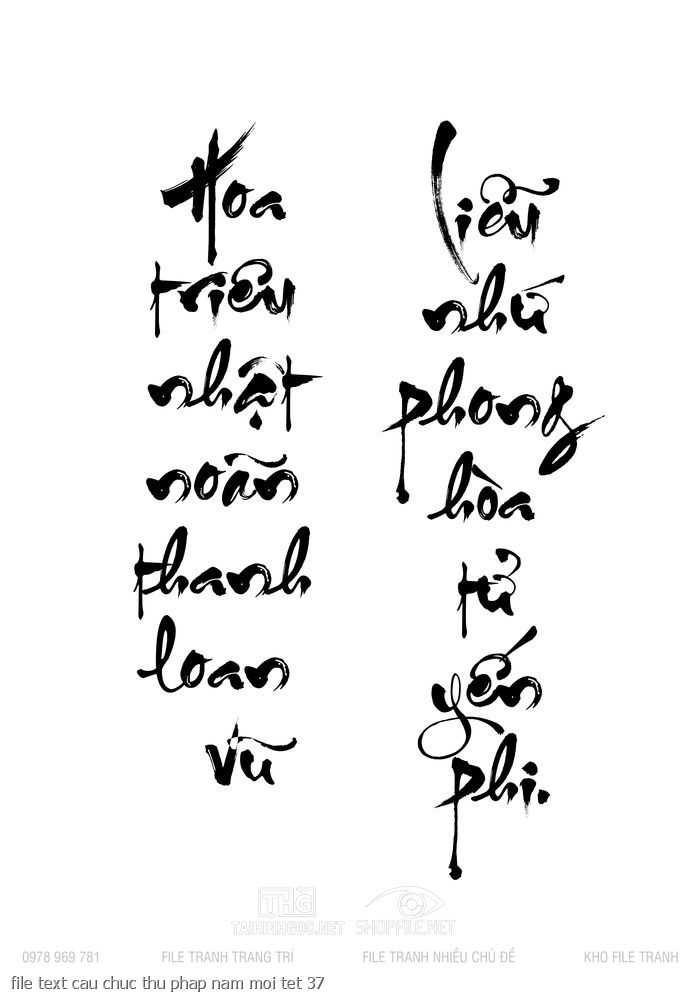 Hoa
triêu
nhật
noãn
thanh
loan
vũ
Liễu
nhứ
phong
hòa
tử
yến
phi.
THG
TAIHINHGOC.NET
SHOPFILE.NET
0978 969 781
FILE TRANH TRANG TRÍ
FILE TRANH NHIỀU CHỦ ĐỀ
KHO FILE TRANH
file text cau chuc thu phap nam moi tet 37